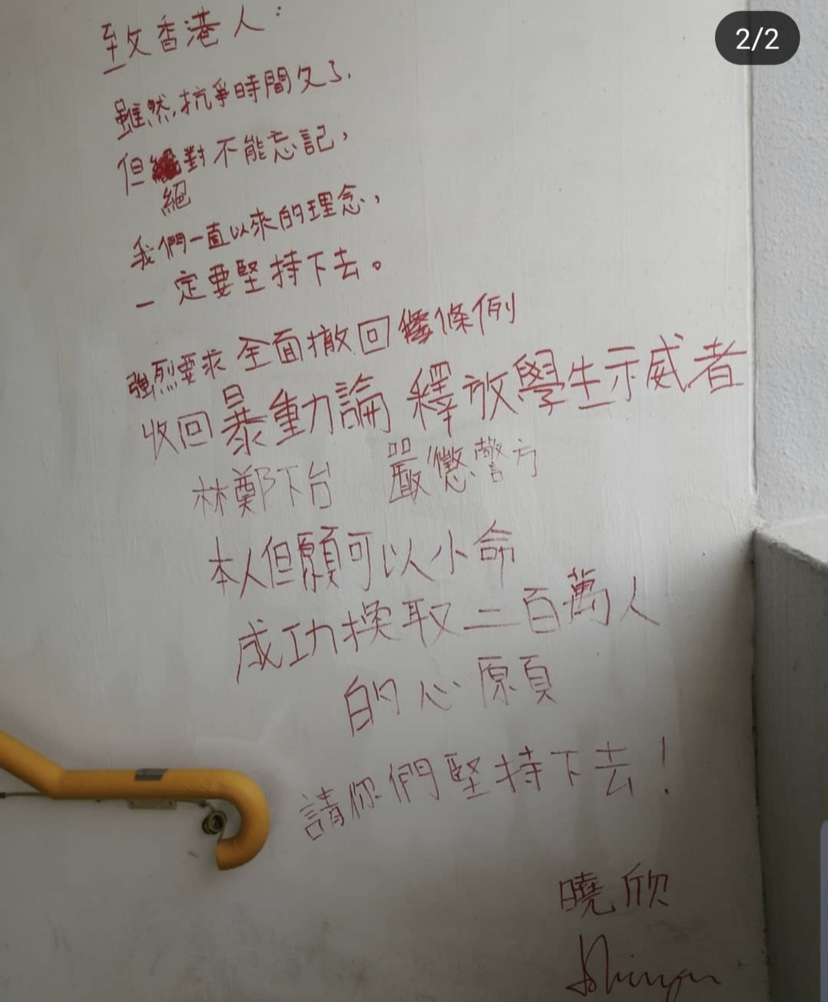 2/2
致香港人：
雖然,抗爭時間久了,
但絕對不能忘記,
我們一直以來的理念,
一定要堅持下去。
強烈要求 全面撤回條例
收回暴動論 釋放學生示威者
林鄭下台 嚴懲警方
本人但願可以小命
成功換取二百萬人
的心願
請你們堅持下去！
曉欣